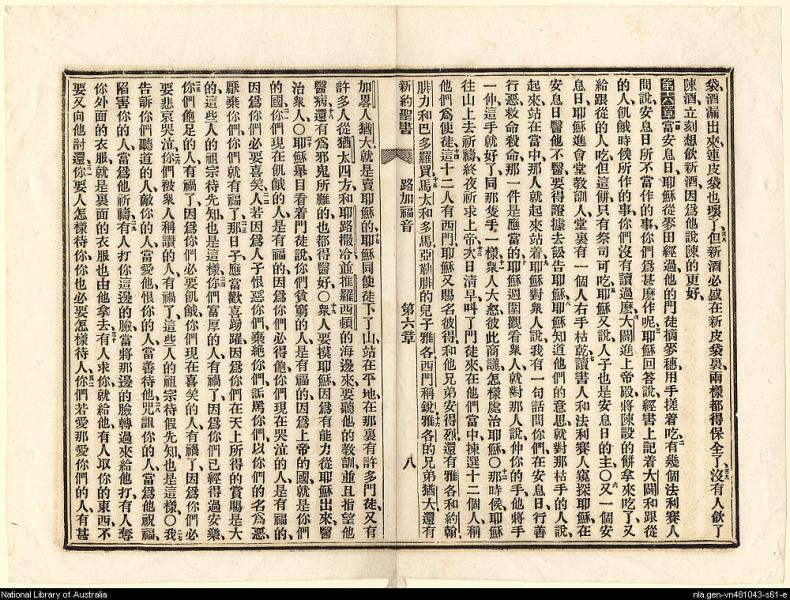 袋、酒漏出來、連皮袋也壞了、但新酒必盛在新皮袋裏、兩樣都得保全了、沒有人飲了
陳酒立刻想飲新酒、因爲他說陳的更好、
第六章 當安息日、耶穌從麥田經過、他的門徒摘麥穗、用手搓着吃、有幾個法利賽人
問說、安息日所不當作的事、你們爲甚麼作呢、耶穌回答說、經書上記着大闢和跟從
的人飢餓時候所作的事、你們沒有讀過麼、大闢進上帝殿、將陳設的餅拿來吃了、又
給跟從的人吃、但這餅只有祭司可吃、耶穌又說、人子也是安息日的主、〇又一個安
息日、耶穌進會堂教訓人、堂裏有一個人、右手枯乾、讀書人和法利賽人窺探耶穌、在
安息日醫他不醫、要得證據去訟告耶穌、耶穌知道他們的意思、就對那枯手的人說、
起來站在當中、那人就起來站着、耶穌對衆人說、我有一句話問你們、在安息日行善
行惡、救命殺命、那一件是應當的、耶穌週圍觀看衆人、就對那人說、伸你的手、他將手
一伸、這手就好了、同那隻手一樣、衆人大怒、彼此商議怎樣處治耶穌、〇那時候耶穌
往山上去祈禱、終夜祈求上帝、次日清早、叫了門徒來、在他們當中揀選十二個人、稱
他們爲使徒、這十二人有西門、耶穌又賜名彼得、和他兄弟安得烈、還有雅各和約翰、
腓力和巴多羅買、馬太和多馬、亞勒腓的兒子雅各、西門稱銳、雅各的兄弟猶大、還有
新約聖書 路加福音 第六章 八
加畧人猶大、就是賣耶穌的、耶穌同使徒下了山、站在平地、在那裏有許多門徒、又有
許多人從猶太四方、和耶路撒冷、並推羅西頓的海邊來、要聽他的教訓、並且指望他
醫病、還有爲邪鬼所難的、也都得醫好、〇衆人要摸耶穌、因爲有能力從耶穌出來、醫
治衆人、〇耶穌舉目看着門徒說、你們貧窮的人是有福的、因爲上帝的國就是你們
的國、你們現在飢餓的人是有福的、因爲你們必得飽、你們現在哭泣的人是有福的、
因爲你們必要喜笑、人若因爲人子恨惡你們、棄絕你們、詬罵你們、以你們的名爲惡、
厭棄你們、你們就有福了、那日子應當歡喜踴躍、因爲你們在天上所得的賞賜是大
的、這些人的祖宗待先知也是這樣、你們富厚的人有禍了、因爲你們已經得過安樂、
你們飽足的人有禍了、因爲你們必要飢餓、你們現在喜笑的人有禍了、因爲你們必
要悲哀哭泣、你們被衆人稱讚的人有禍了、這些人的祖宗待假先知也是這樣、〇我
告訴你們聽道的人、敵你的人當愛他、恨你的人當善待他、咒詛你的人當爲他祝福、
陷害你的人當爲他祈禱、有人打你這邊的臉、當將那邊的臉轉過來給他打、有人奪
你外面的衣服、就是裏面的衣服也由他拿去、有人求你、就給他、有人取你的東西、不
要又向他討還、你要人怎樣待你、你也必要怎樣待人、你們若愛那愛你們的人、有甚
National Library of Australia
nla.gen-vn481043-s61-e